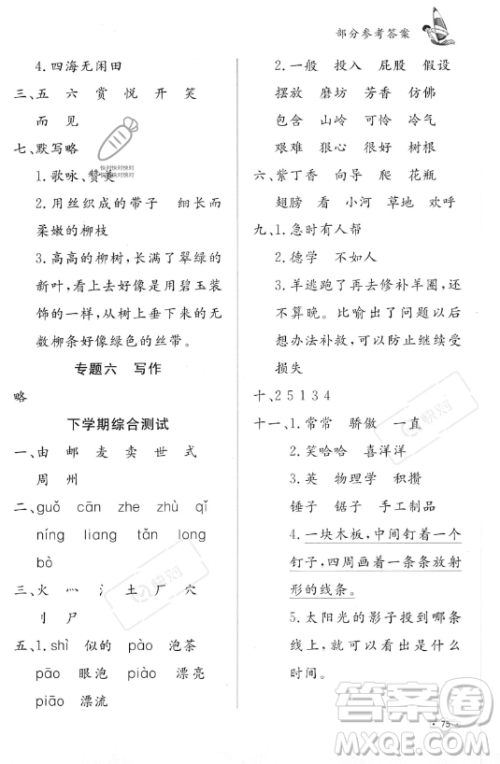 部分参考答案
4.四海无闲田
三、五 六 赏 悦 开 笑
而 见
七、默写略
1.歌咏、赞美
2.用丝织成的带子 细细的
柔嫩的柳枝
3.高高的柳树,长满了翠绿的
新叶,看上去好像是用碧玉装
饰的一样,从树上垂下来的无
数柳条好像绿色的丝带。
专题六 写作
略
下学期综合测试
一、由 邮 麦 卖 世 式
周 州
二、guǒ cān zhe zhù qǐ
níng liang tǎn long
bò
三、火 灬 氵 土 厂 穴
刂 尸
五、1.shì 似的 pào 泡茶
pāo 眼泡 piào 漂亮
piāo 漂流
2.一般 投入 屁股 假设
摆放 磨坊 芳香 仿佛
包含 山岭 可怜 冷气
艰难 狠心 很好 树根
六、紫丁香 向导 爬 花瓶
翅膀 看 小河 草地 欢呼
九、1.急时有人帮
2.德学 不如人
3.羊逃跑了再去修补羊圈,还
不算晚。比喻出了问题以后
想办法补救,可以防止继续受
损失
十、2 5 1 3 4
十一、1.常常 骄傲 一直
2.笑哈哈 喜洋洋
3.英 物理学 科学 数学
锤子 锯子 手工制品
4.一块木板,中间钉着一个
钉子,四周画着一条条放射
形的线条。
5.太阳光的影子投到哪条
线上,就可以看出是什么
时间。
快对
快对
答案圈
MXQE.COM
· 75 ·